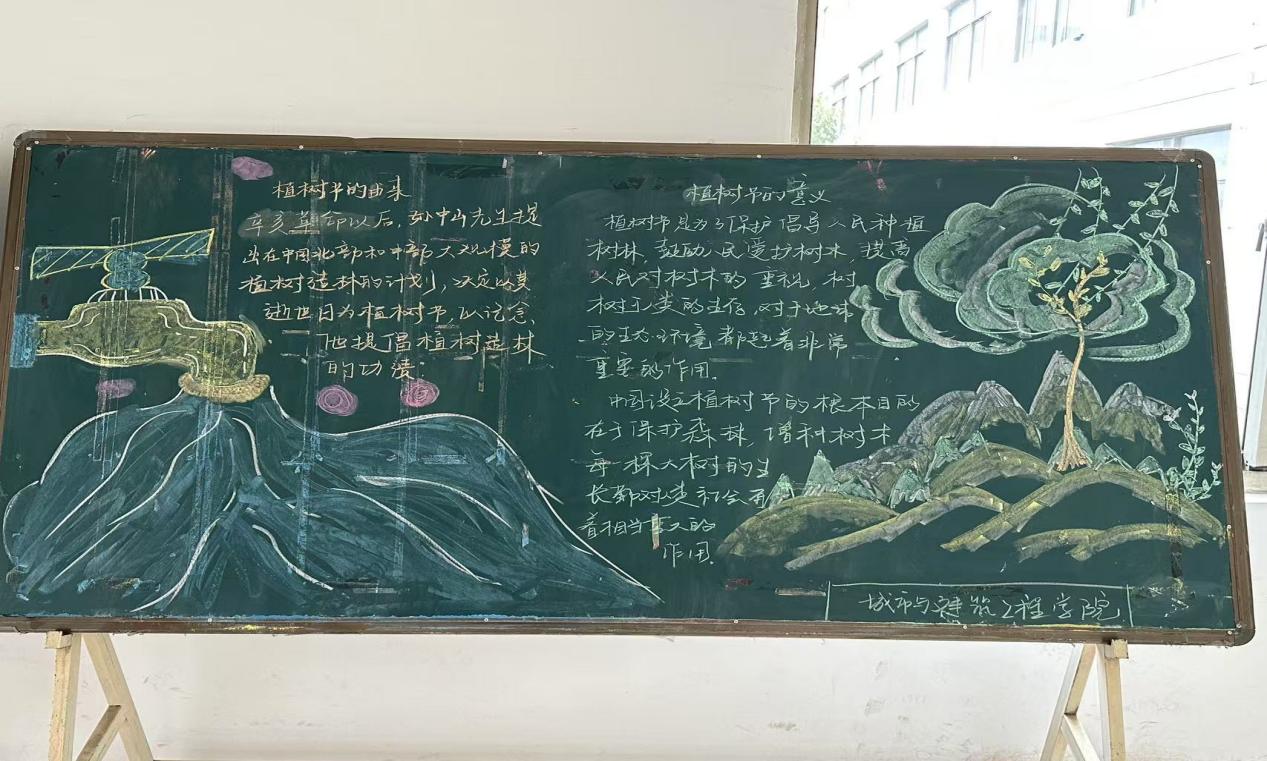 植树节的由来
辛亥革命以后，孙中山先生提
出在中国北部和中部大规模的
植树造林的计划，决定以其
逝世日为植树节，以纪念
他提倡植树造林
的功绩。
植树节的意义
植树节是为了保护倡导人民种植
树林，鼓励人民爱护树木，提高
人民对树木的重视，树
树于人类的生存，对于地球
的生态环境都起着非常
重要的作用。
中国设立植树节的根本目的
在于保护森林，增种树木
每一棵大树的生
长都对人类社会有
着相当重大的
作用。
城市与建筑工程学院